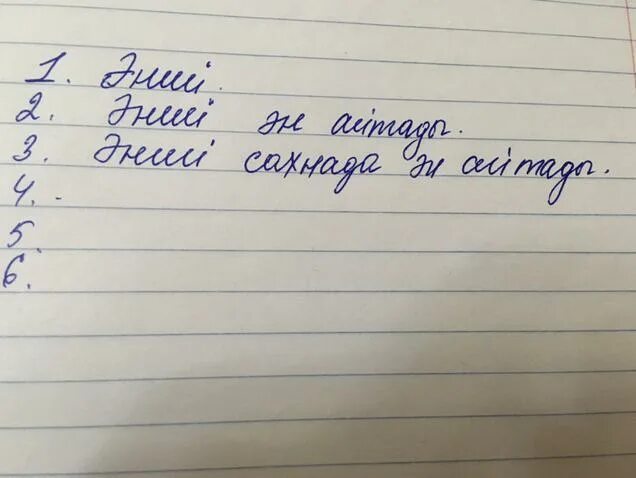 1. Әнші.
2. Әнші ән айтады.
3. Әнші сахнада ән айтады.
4. .
5.
6.